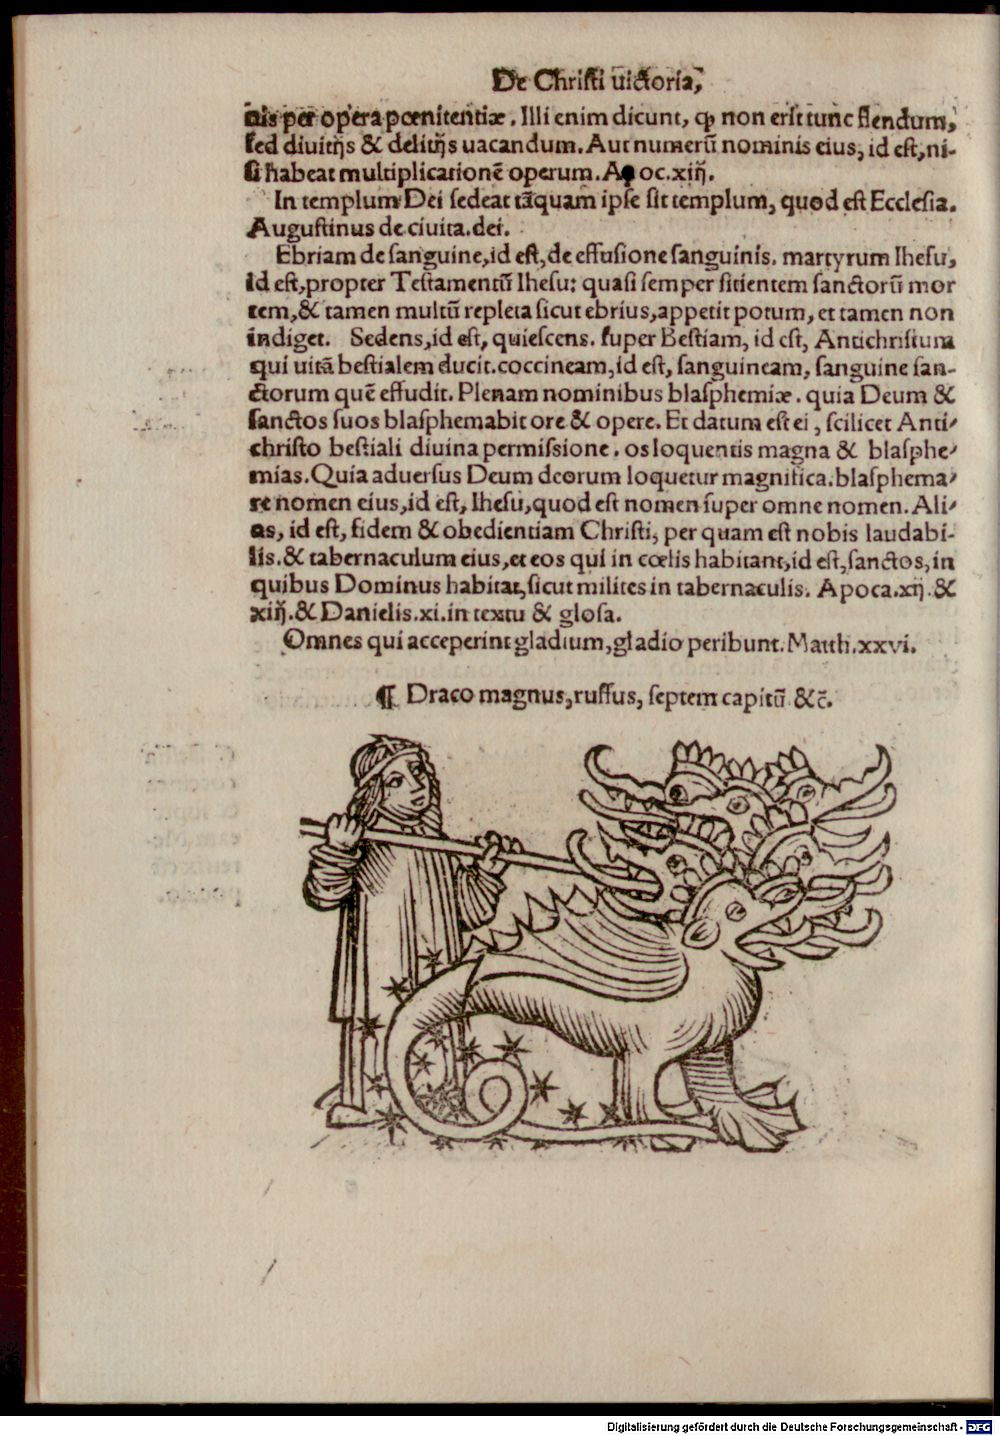 De Christi uictoria,
nis per opera pœnitentiæ. Illi enim dicunt, ꝙ non erit tunc flendum,
sed diuitijs & delitijs uacandum. Aut numerũ nominis eius, id est, ni-
si habeat multiplicationẽ operum. Apoc.xiij.
In templum Dei sedeat tãquam ipse sit templum, quod est Ecclesia.
Augustinus de ciuita.dei.
Ebriam de sanguine, id est, de effusione sanguinis. martyrum Ihesu,
id est, propter Testamentũ Ihesu: quasi semper sitientem sanctorũ mor
tem, & tamen multũ repleta sicut ebrius, appetit potum, et tamen non
indiget. Sedens, id est, quiescens. super Bestiam, id est, Antichristum
qui uitã bestialem ducit. coccineam, id est, sanguineam, sanguine san-
ctorum quẽ effudit. Plenam nominibus blasphemiæ. quia Deum &
sanctos suos blasphemabit ore & opere. Et datum est ei, scilicet Anti-
christo bestiali diuina permissione. os loquentis magna & blasphe-
mias. Quia aduersus Deum deorum loquetur magnifica. blasphema-
re nomen eius, id est, Ihesu, quod est nomen super omne nomen. Ali-
as, id est, fidem & obedientiam Christi, per quam est nobis laudabi-
lis. & tabernaculum eius, et eos qui in cœlis habitant, id est, sanctos, in
quibus Dominus habitat, sicut milites in tabernaculis. Apoca.xij. &
xiij. & Danielis.xi. in textu & glosa.
Omnes qui acceperint gladium, gladio peribunt. Matth.xxvi.
¶ Draco magnus, ruffus, septem capitũ &c̃.
Digitalisierung gefördert durch die Deutsche Forschungsgemeinschaft - DFG